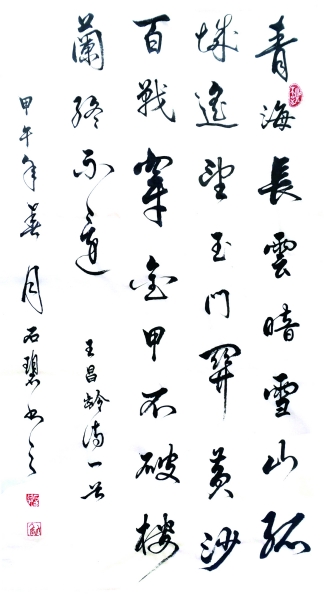 青海長雲暗雪山孤
城遙望玉門關黄沙
百戰穿金甲不破樓
蘭終不還
王昌齡詩一首
甲午年月石碧书之